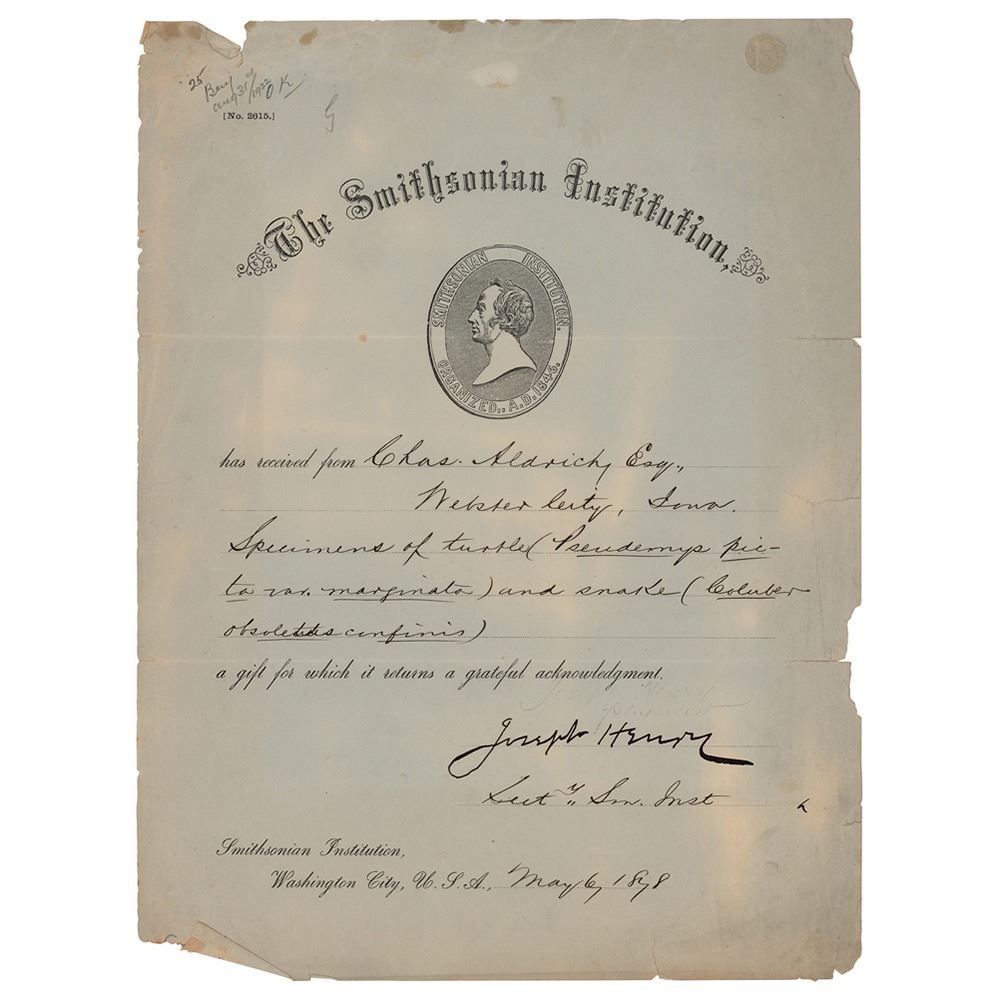 25
Aug 31st/1922 OK
[No. 2615.]
G
The Smithsonian Institution,
SMITHSONIAN INSTITUTION.
ORGANIZED., A.D. 1846.
has received from Chas. Aldrich, Esq.,
Webster City, Iowa.
Specimens of turtle (Pseudemys pic-
ta var. marginata) and snake (Coluber
obsoletus confinis)
a gift for which it returns a grateful acknowledgment.
Joseph Henry
Sect'y., Sm. Inst
Smithsonian Institution,
Washington City, U. S. A., May 6, 1878